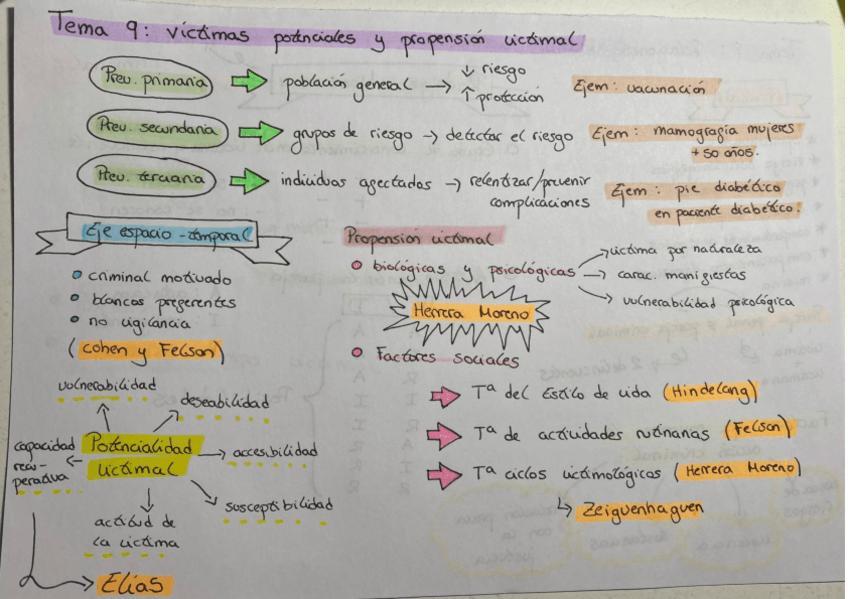 Tema 9: víctimas potenciales y propensión victimal
Prev. primaria → población general → ↓ riesgo
↑ protección
Ejem: vacunación
Prev. secundaria → grupos de riesgo → detectar el riesgo
Ejem: mamografía mujeres
+ 50 años.
Prev. terciaria → individuos afectados → relentizar/prevenir
complicaciones
Ejem: pie diabético
en paciente diabético.
Eje espacio-temporal
criminal motivado
blancos preferentes
no vigilancia
(Cohen y Felson)
Potencialidad
victimal
vulnerabilidad
deseabilidad
accesibilidad
susceptibilidad
actitud de
la víctima
capacidad
recu-
perativa
Elías
Propensión victimal
biológicas y psicológicas
víctima por naturaleza
carac. manifiestas
vulnerabilidad psicológica
Herrera Moreno
Factores sociales
Tª del Estilo de vida (Hindelang)
Tª de actividades rutinarias (Felson)
Tª ciclos victimológicos (Herrera Moreno)
Zeiguenhaguen